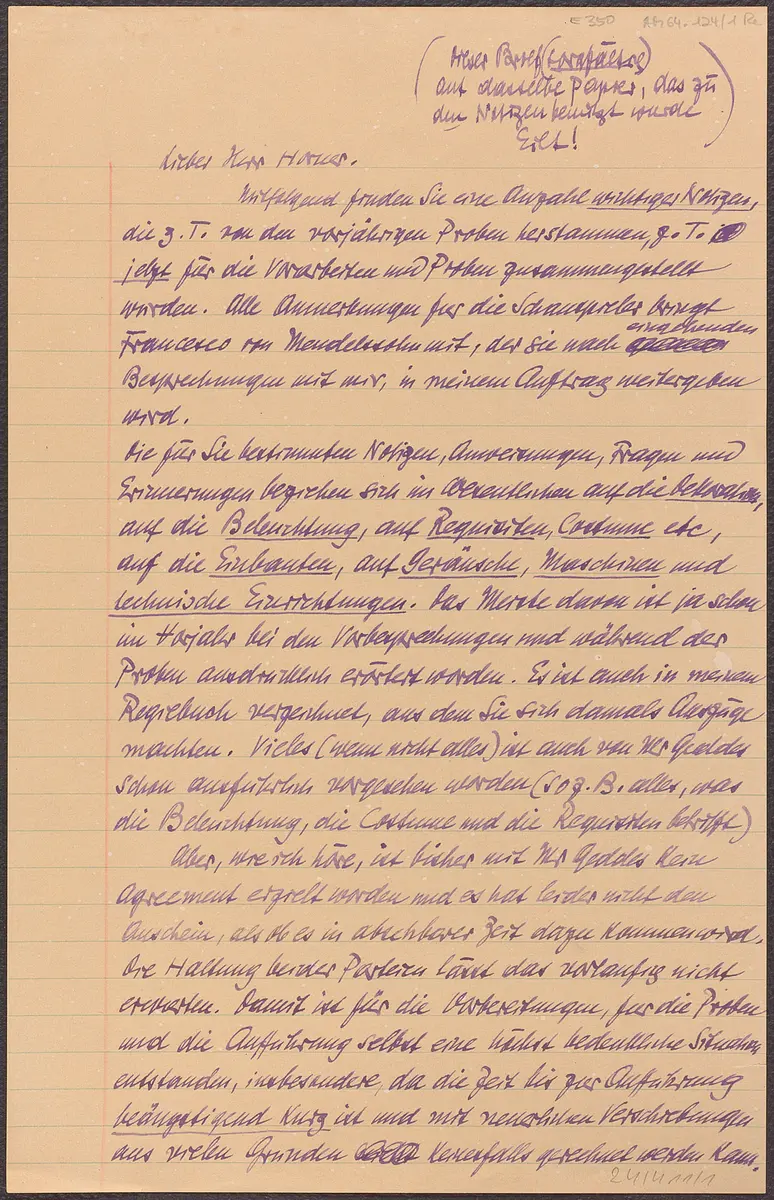 E 350 AM 64-124/1 Re
(Dieser Brief (sorgfältig)
auf dasselbe Papier, das zu
den Notizen benützt wurde
Eilt!)
Lieber Herr Horner.
Mitfolgend finden Sie eine Anzahl wichtiger Notizen,
die z. T. von den vorjährigen Proben herstammen, z. T.
jetzt für die Vorarbeiten und Proben zusammengestellt
wurden. Alle Anmerkungen für die Schauspieler bringt
Francesco von Mendelssohn mit, der sie nach eingehenden
Besprechungen mit mir, in meinem Auftrag weitergeben
wird.
Die für Sie bestimmten Notizen, Anweisungen, Fragen und
Erinnerungen beziehen sich im Wesentlichen auf die Dekoration,
auf die Beleuchtung, auf Requisiten, Costume etc,
auf die Einbauten, auf Geräusche, Maschinen und
technische Einrichtungen. Das Meiste davon ist ja schon
im Vorjahr bei den Vorbesprechungen und während der
Proben ausdrücklich erörtert worden. Es ist auch in meinem
Regiebuch verzeichnet, aus dem Sie sich damals Auszüge
machten. Vieles (wenn nicht alles) ist auch von Mr Geddes
schon ausführlich vorgesehen worden (so z. B. alles, was
die Beleuchtung, die Costume und die Requisiten betrifft)
Aber, wie ich höre, ist bisher mit Mr Geddes kein
Agreement erzielt worden und es hat leider nicht den
Anschein, als ob es in absehbarer Zeit dazu kommen wird.
Die Haltung beider Parteien lässt das vorläufig nicht
erwarten. Damit ist für die Vorbereitungen, für die Proben
und die Aufführung selbst eine höchst bedenkliche Situation
entstanden, insbesondere, da die Zeit bis zur Aufführung
beängstigend kurz ist und mit neuerlichen Verschiebungen
aus vielen Gründen keinesfalls gerechnet werden kann.
24/4 11/1